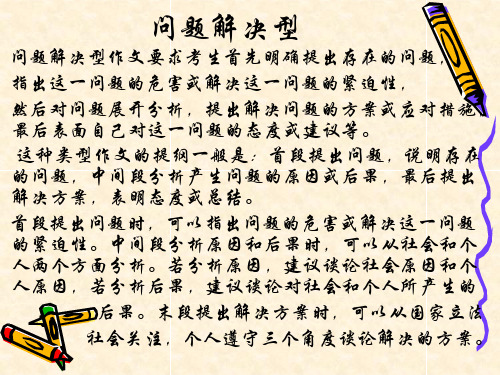 问题解决型
问题解决型作文要求考生首先明确提出存在的问题，
指出这一问题的危害或解决这一问题的紧迫性，
然后对问题展开分析，提出解决问题的方案或应对措施
最后表面自己对这一问题的态度或建议等。
这种类型作文的提纲一般是：首段提出问题，说明存在
的问题，中间段分析产生问题的原因或后果，最后提出
解决方案，表明态度或总结。
首段提出问题时，可以指出问题的危害或解决这一问题
的紧迫性。中间段分析原因和后果时，可以从社会和个
人两个方面分析。若分析原因，建议谈论社会原因和个
人原因，若分析后果，建议谈论对社会和个人所产生的
后果。末段提出解决方案时，可以从国家立法
社会关注，个人遵守三个角度谈论解决的方案。